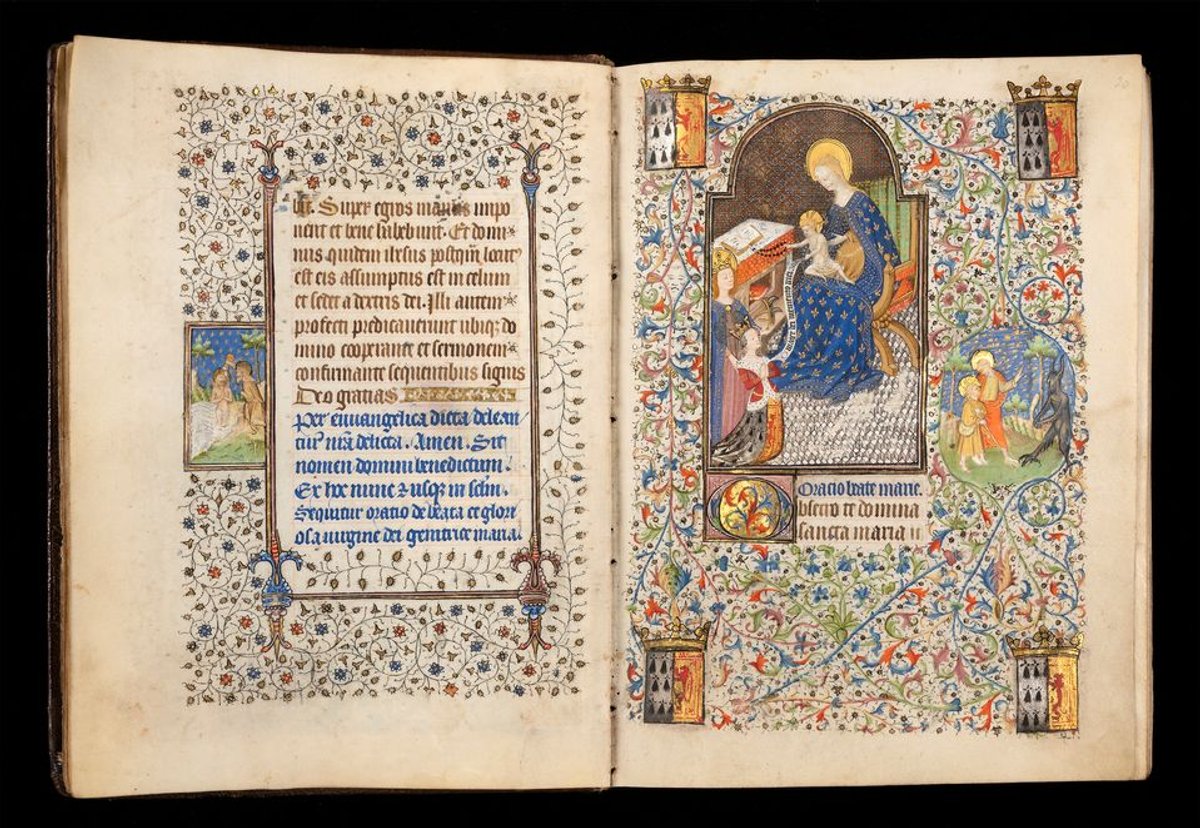 Super egros manus impo
nent et bene habebunt. Et domi
nus quidem ihesus postq̄m locut᾿
est eis assumptus est in celum
et sedet a dextris dei. Illi autem
profecti predicauerunt ubiq; do
mino cooperante et sermonem
confirmante sequentibus signis
Deo gratias
Per euuangelica dicta delean
tur nr̄a delicta. Amen. Sit
nomen domini benedictum.
Ex hoc nunc & usq; in sclm̄.
Sequitur oratio de beata et glori
osa uirgine dei genitrice maria.
Oratio beate marie.
Obsecro te domina
sancta maria